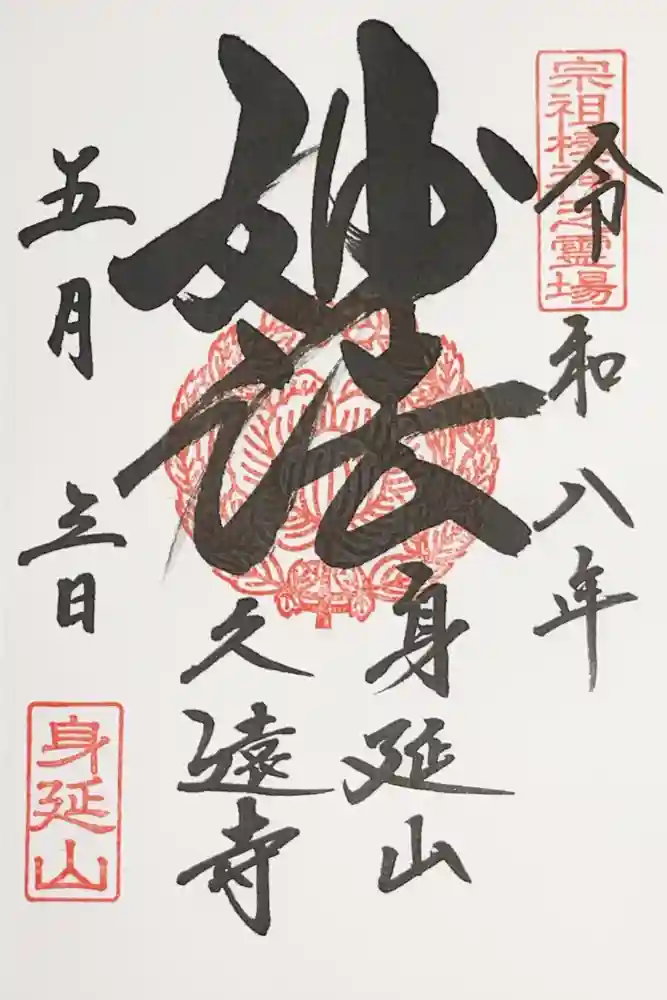 宗祖棲神之靈場
令和八年
妙法
身延山
久遠寺
五月三日
身延山